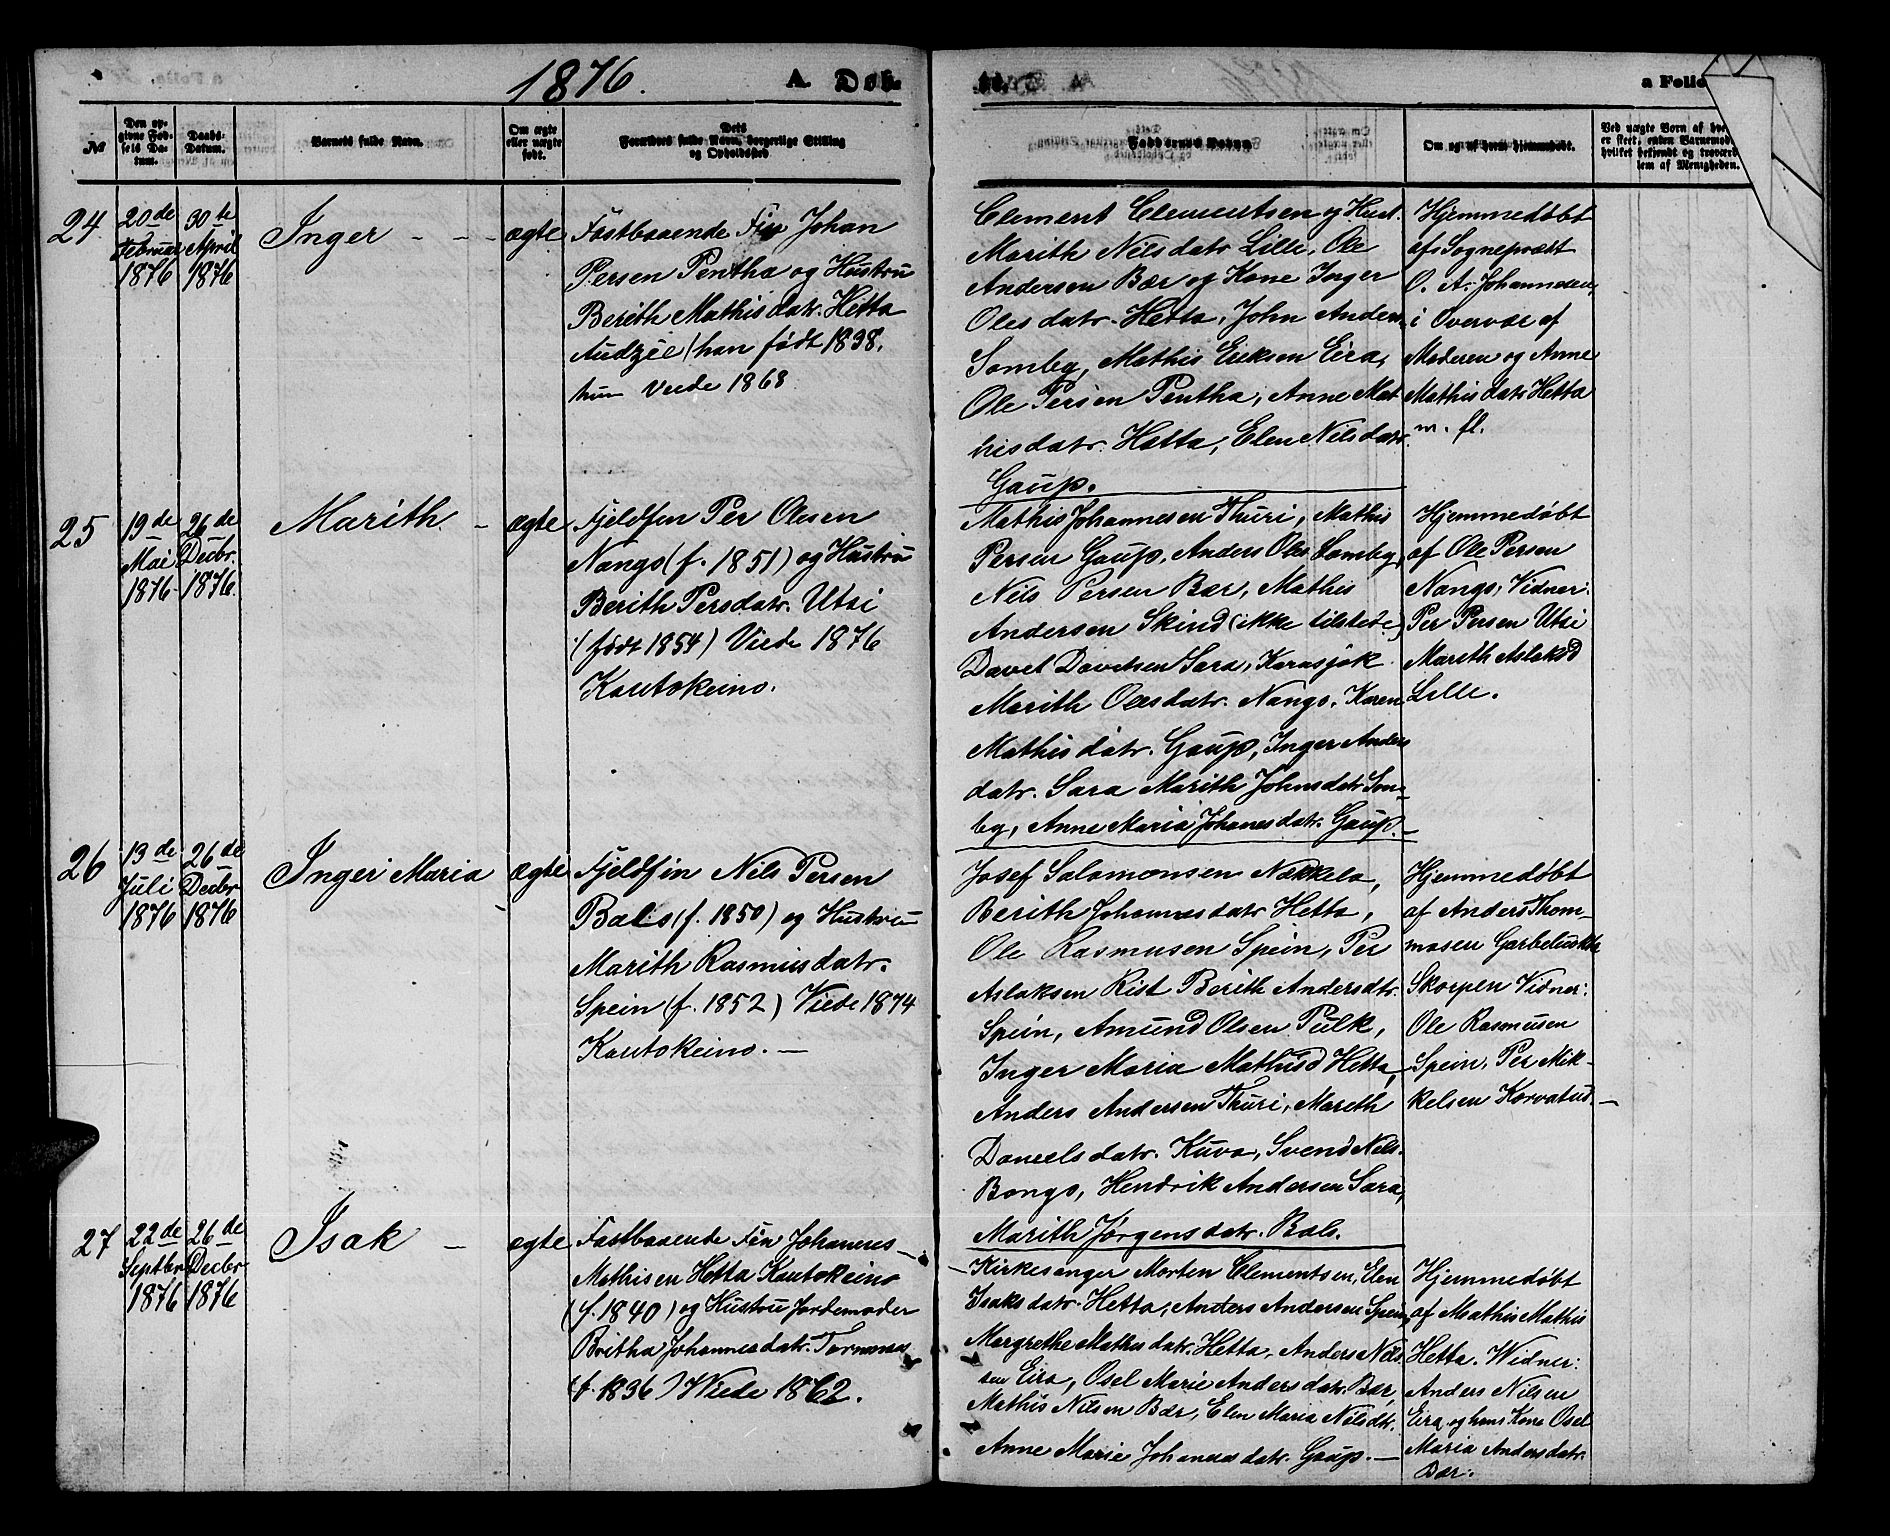 1876.
A. Døb
a Folio
№
Den op-
givne Fød-
sels Da-
tum.
Daabs-
Datum.
Barnets fulde Navn.
Om ægte
eller uægte
født.
Dets
Forældres fulde Navn, borgerlige Stilling
og Opholdssted
Faddernes Navne
Om og af hvem hjemmedøbt.
Ved uægte Børn af hve
er skeet, enten Barnemod
hvilket bekjendt og troværd
lem af Menigheden.
24
20de
Februar
1876
30te
April
1876
Inger - - -
ægte
Fastboaende Fin Johan
Persen Pentha og Hustru
Berith Mathisdatr. Hetta
Audzèe (han født 1838,
hun viede 1868
Clement Clementsen og Hust.
Marith Nilsdatr Lille, Ole
Andersen Bær og Kone Inger
Olesdatr. Hetta, John Anders
Somby, Mathis Eriksen Eira,
Ole Persen Pentha, Anne Mat
hisdatr. Hætta, Elen Nilsdatr.
Gaup.
Hjemmedøbt
af Sognepræst
O. A. Johannesen,
i Overvær af
Moderen og Anne
Mathisdatr Hetta
m. fl.
25
19de
Mai
1876
26de
Decbr.
1876.
Marith -
ægte
Fjeldfin Per Olsen
Nango (f. 1851) og Hustru
Berith Persdatr. Utsi
(født 1854) Viede 1876
Kautokeino.
Mathis Johannesen Thuri, Mathis
Persen Gaup, Anders Ols. Somby,
Nils Persen Bær, Mathis
Andersen Skind (ikke tilstede)
Davet Davetsen Sara, Karasjok
Marith Olesdatr. Nango. Karen
Mathisdatr. Gaup, Inger Anders
datr. Sara Marith Johnsdatr Som-
by, Anne Maria Johanesdatr. Gaup.
Hjemmedøbt
af Ole Persen
Nango, Vidner:
Per Persen Utsi
Marith Aslaksd
Lille.
26
13de
Juli
1876
26de
Decbr
1876
Inger Maria -
ægte
Fjeldfin Nils Persen
Bals (f. 1850) og Hustru
Marith Rasmusdatr.
Spein (f. 1852) Viede 1874
Kautokeino. -
Josef Salamonsen Nækkela,
Berith Johannesdatr Hetta,
Ole Rasmusen Spein, Per
Aslaksen Rist Berith Andersdtr.
Spein, Amund Olsen Pulk,
Inger Maria Mathisd Hetta,
Anders Andersen Thuri, Mareth
Danielsdatr. Kuva, Svend Nils.
Bongo, Hendrik Andersen Sara,
Marith Jørgensdatr. Bals.
Hjemmedøbt
af Anders Thom-
masen
Skorpen Vidner:
Ole Rasmusen
Spein, Per Mik-
kelsen Korvatus. -
27
22de
Septbr
1876
26de
Decbr
1876
Isak -
ægte
Fastboaende Fin Johannes
Mathisen Hetta Kautokeino
(f. 1840) og Hustru Jordemoder
Britha Johannesdatr. Tornenses
(f. 1836) Viede 1862.
- Kirkesanger Morten Clementsen, Elen
Isaksdatr. Hetta, Anders Andersen Spein,
Margrethe Mathisdatr. Hetta, Anders Nils
sen Eira, Osel Marie Andersdatr. Bær,
Mathis Nilsen Bær, Elen Maria Nilsdtr.
Anne Marie Johanesdatr. Gaup. -
Hjemmedøbt
af Mathis Mathis
Hetta. Widner:
Anders Nilsen
Eira, og hans Kone Osel
Maria Andersdatr.
Bær.